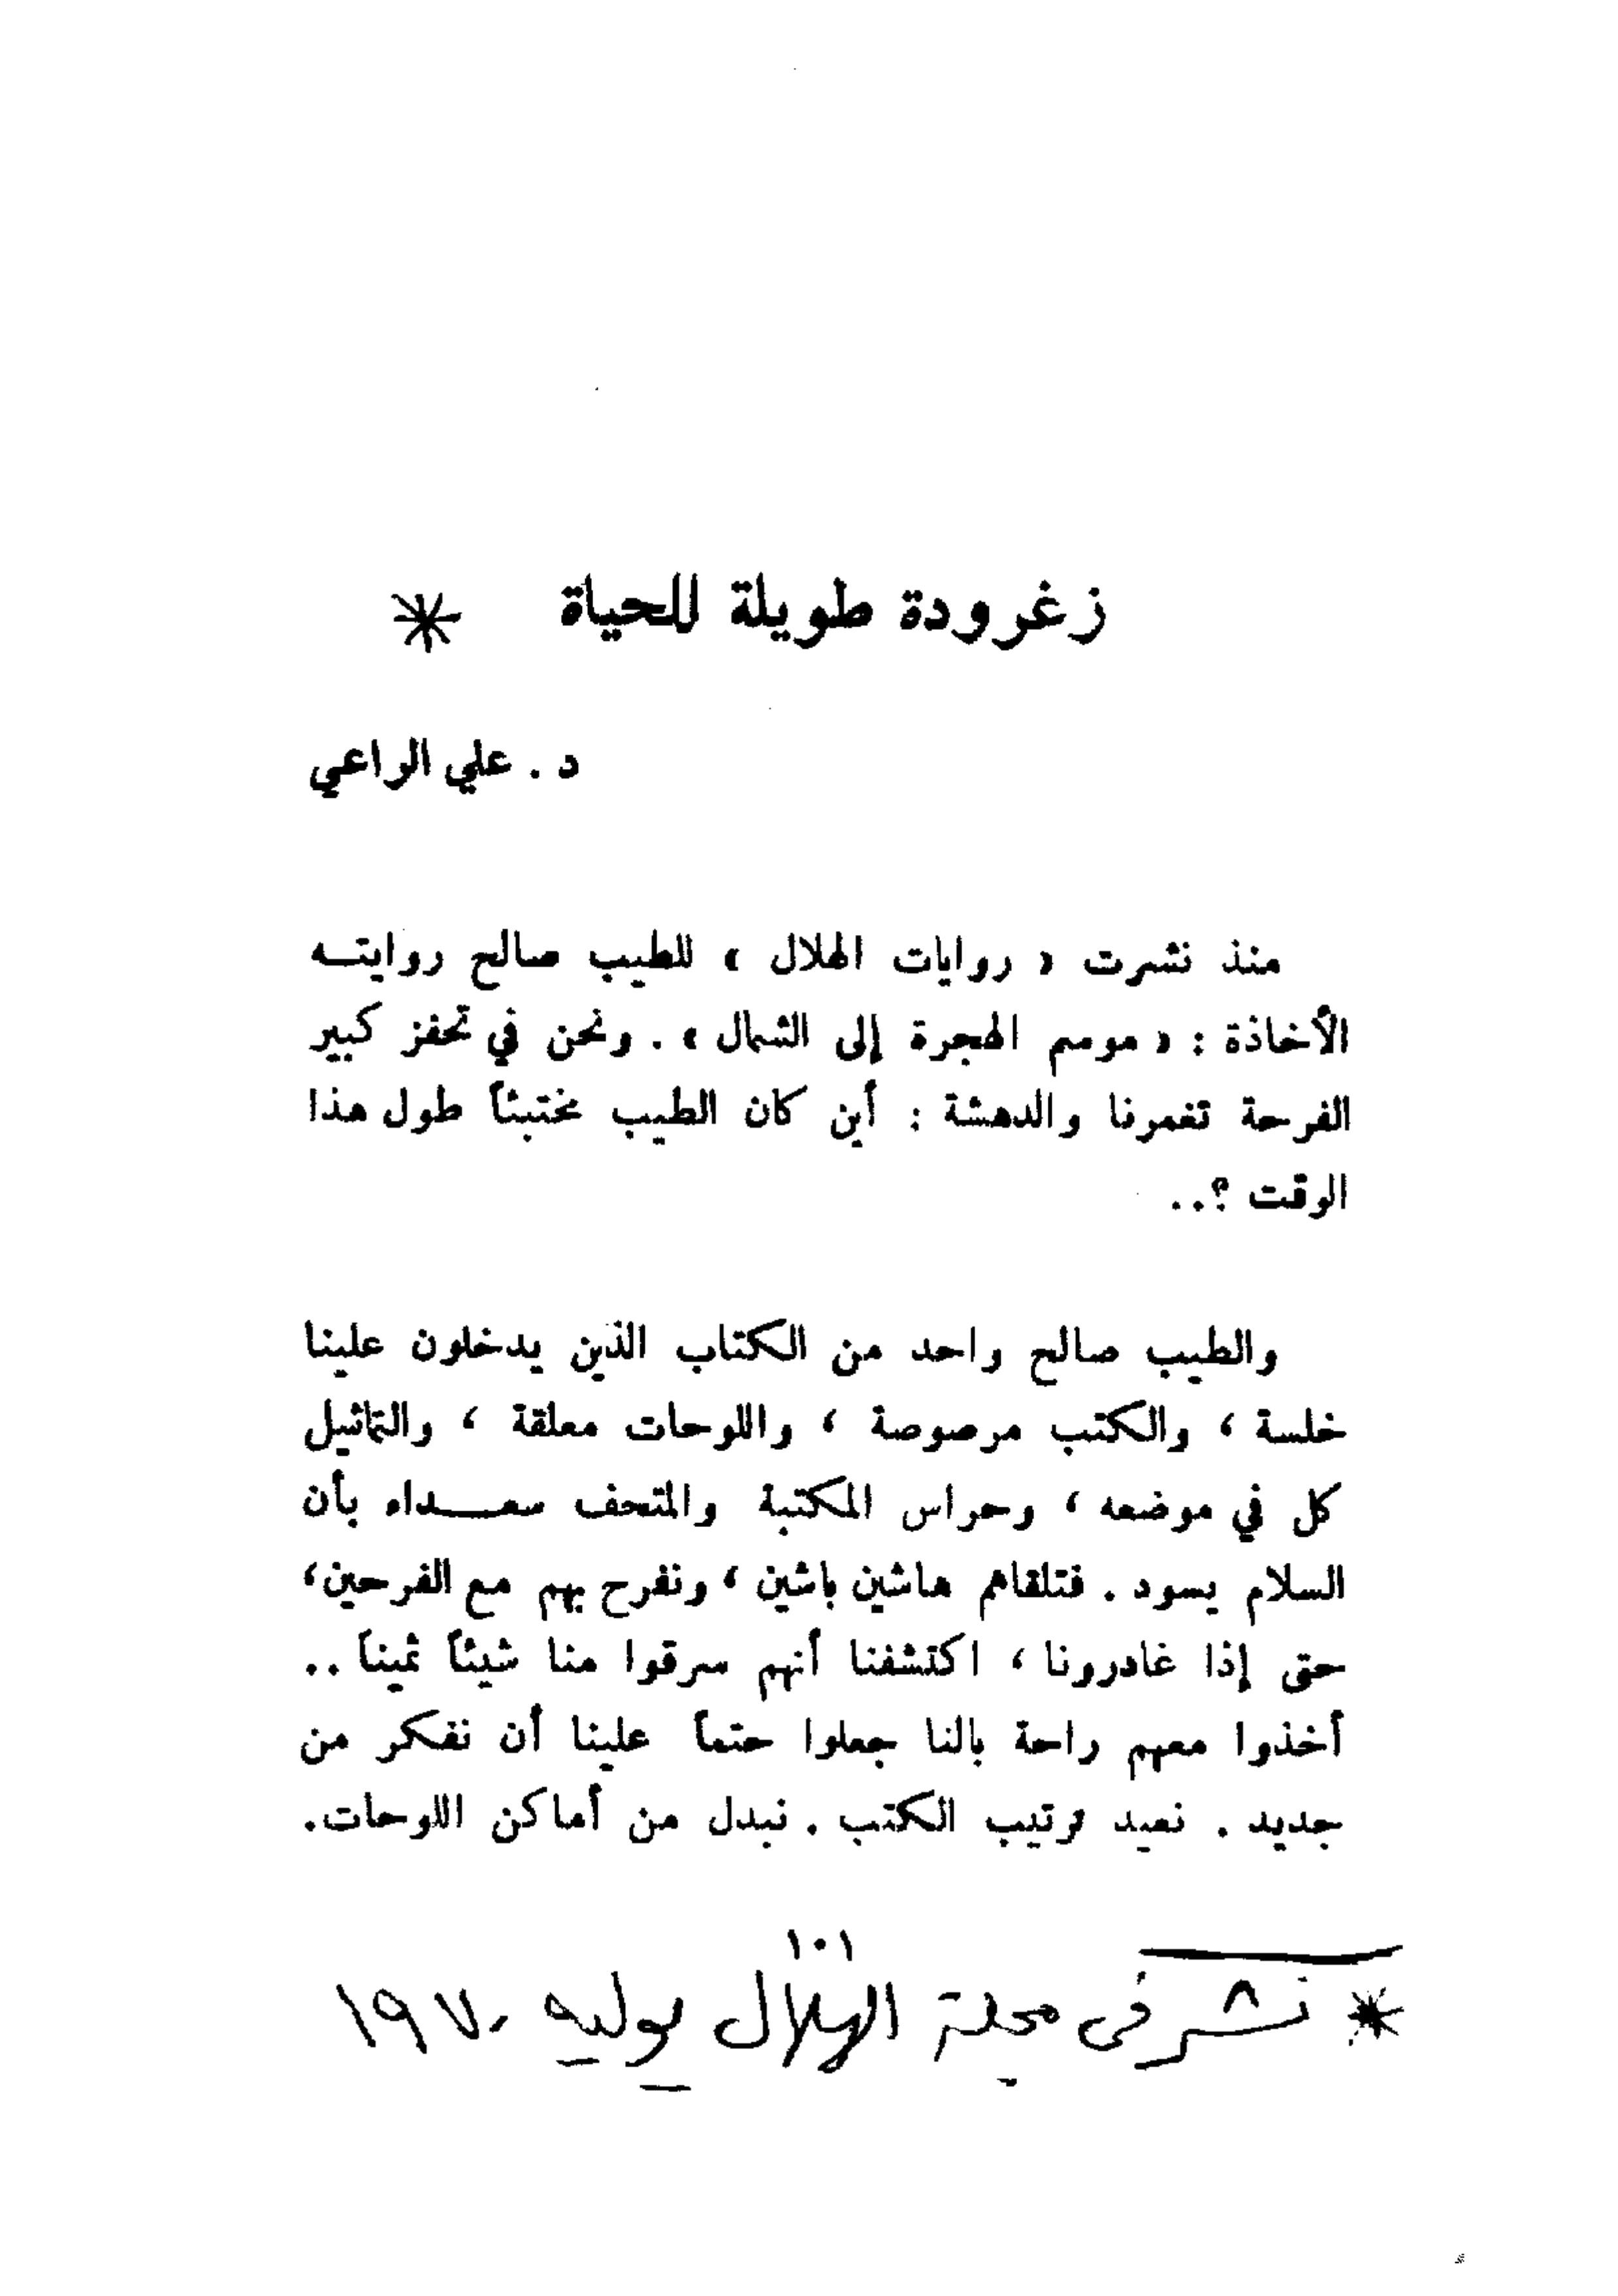 زغرودة طويلة للحياة *
د . علي الراعي
منذ نشرت « روايات الهلال » للطيب صالح روايتـــه
الأخاذة : « موسم الهجرة إلى الشمال » . ونحن في تحفز كبير
الفرحة تغمرنا والدهشة : أين كان الطيب مختبئاً طول هذا
الوقت ؟..
والطيب صالح واحد من الكتاب الذين يدخلون علينا
خلسة ، والكتب مرصوصة ، واللوحات معلقة ، والتماثيل
كل في موضعه ، وحراس المكتبة والمتحف سعـــداء بأن
السلام يسود . فنتلقاهم هاشين باشين ، ونفرح بهم مع الفرحين،
حتى إذا غادرونا ، اكتشفنا أنهم سرقوا منا شيئاً ثميناً ..
أخذوا معهم راحة بالنا جعلوا حتماً علينا أن نفكر من
جديد . نعيد ترتيب الكتب . نبدل من أماكن اللوحات.
١٠١
* نشر فى مجلة الهلال يوليه ١٩٧٠